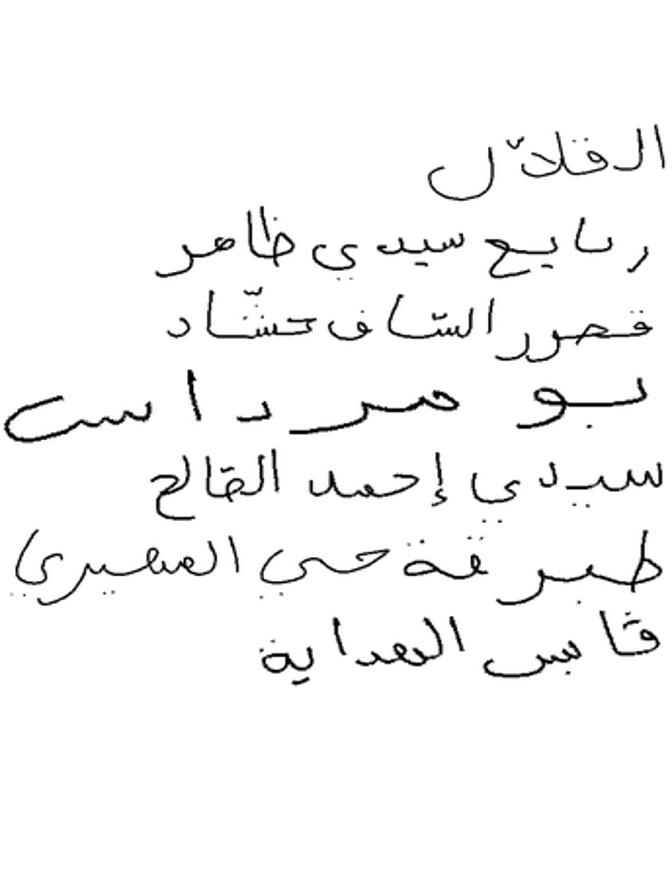 القلاّل
ربايع سيدي ظاهر
قصور السّاف حشّاد
بو مرداس
سيدي إحمد الصّالح
طبرقة حي المهيري
قابس الهداية